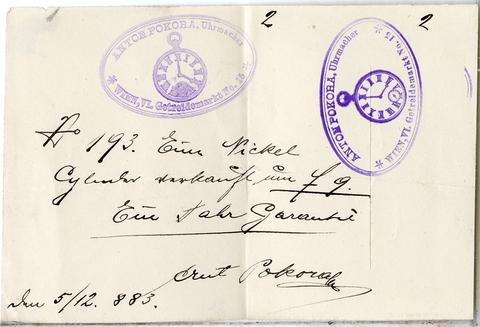 2
2
ANTON POKORA, Uhrmacher
* WIEN, VI. Getreidemarkt No. 15 *
ANTON POKORA, Uhrmacher
* WIEN, VI. Getreidemarkt No. 15 *
No 193. Eine Nickel
Cylinder verkauft um f 9.
Ein Jahr Garantie
Ant Pokora
den 5/12. 883.